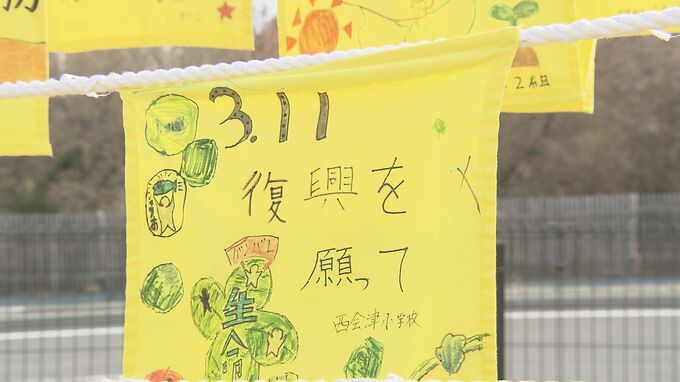 3.11
復興を
願って
西会津小学校
生命
2組